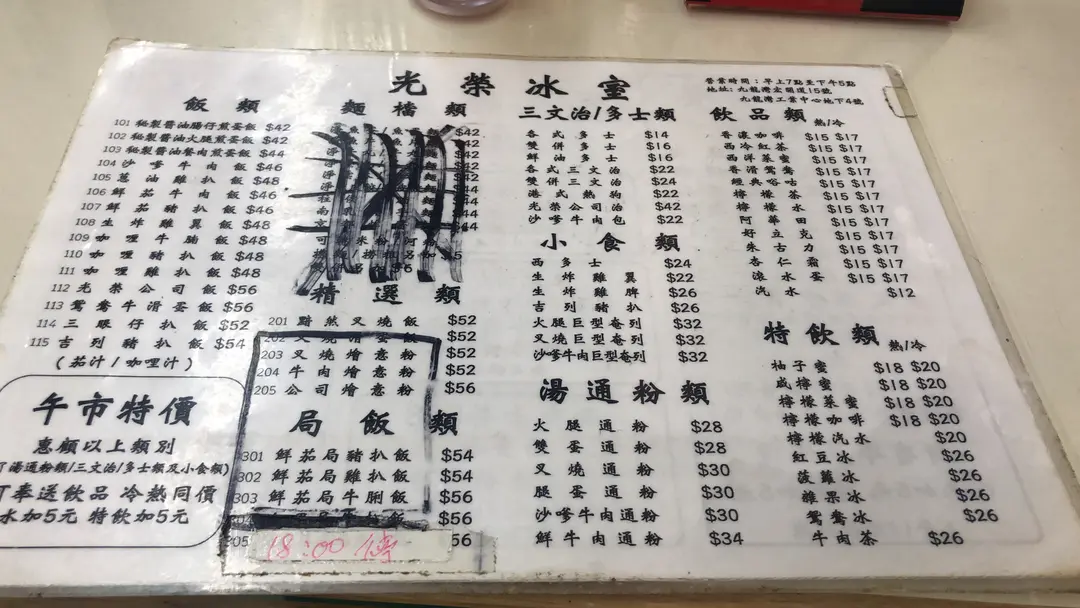 光榮冰室
營業時間：早上7點至下午5點
地址：九龍灣宏開道15號
九龍灣工業中心地下4號
飯類
101 秘製醬油腸仔煎蛋飯 $42
102 秘製醬油火腿煎蛋飯 $42
103 秘製醬油餐肉煎蛋飯 $44
104 沙嗲牛肉飯 $46
105 蔥油雞扒飯 $48
106 鮮茄牛肉飯 $46
107 鮮茄豬扒飯 $46
108 生炸雞翼飯 $48
109 咖喱牛腩飯 $48
110 咖喱豬扒飯 $48
111 咖喱雞扒飯 $48
112 光榮公司飯 $56
113 鴛鴦牛滑蛋飯 $56
114 三眼仔扒飯 $52
115 吉列豬扒飯 $54
(茄汁/咖喱汁)
午市特價
惠顧以上類別
湯通粉類/三文治/多士類及小食類)
奉送飲品 冷熱同價
水加5元 特飲加5元
麵檔類
精選類
201 黯然叉燒飯 $52
202 $52
203 叉燒燴意粉 $52
204 牛肉燴意粉 $52
205 公司燴意粉 $56
局飯類
301 鮮茄局豬扒飯 $54
302 鮮茄局雞扒飯 $54
303 鮮茄局牛脷飯 $56
$56
56
18:00 停
三文治/多士類
各式多士 $14
雙併多士 $16
鮮油多士 $16
各式三文治 $22
雙併三文治 $24
港式熱狗 $22
光榮公司治 $42
沙嗲牛肉包 $22
小食類
西多士 $24
生炸雞翼 $22
生炸雞脾 $26
吉列豬扒 $26
火腿巨型奄列 $32
叉燒巨型奄列 $32
沙嗲牛肉巨型奄列 $32
湯通粉類
火腿通粉 $28
雙蛋通粉 $28
叉燒通粉 $30
腿蛋通粉 $30
沙嗲牛肉通粉 $30
鮮牛肉通粉 $34
飲品類 熱/冷
香滾咖啡 $15 $17
西冷紅茶 $15 $17
西洋菜蜜 $15 $17
香滑鴛鴦 $15 $17
經典唂咕 $15 $17
檸檬茶 $15 $17
檸檬水 $15 $17
阿華田 $15 $17
好立克 $15 $17
朱古力 $15 $17
杏仁霜 $15 $17
滾水蛋 $15 $17
汽水 $12
特飲類 熱/冷
柚子蜜 $18 $20
咸檸蜜 $18 $20
檸檬菜蜜 $18 $20
檸檬咖啡 $18 $20
檸檬汽水 $20
紅豆冰 $26
菠蘿冰 $26
雜果冰 $26
鴛鴦冰 $26
牛肉茶 $26